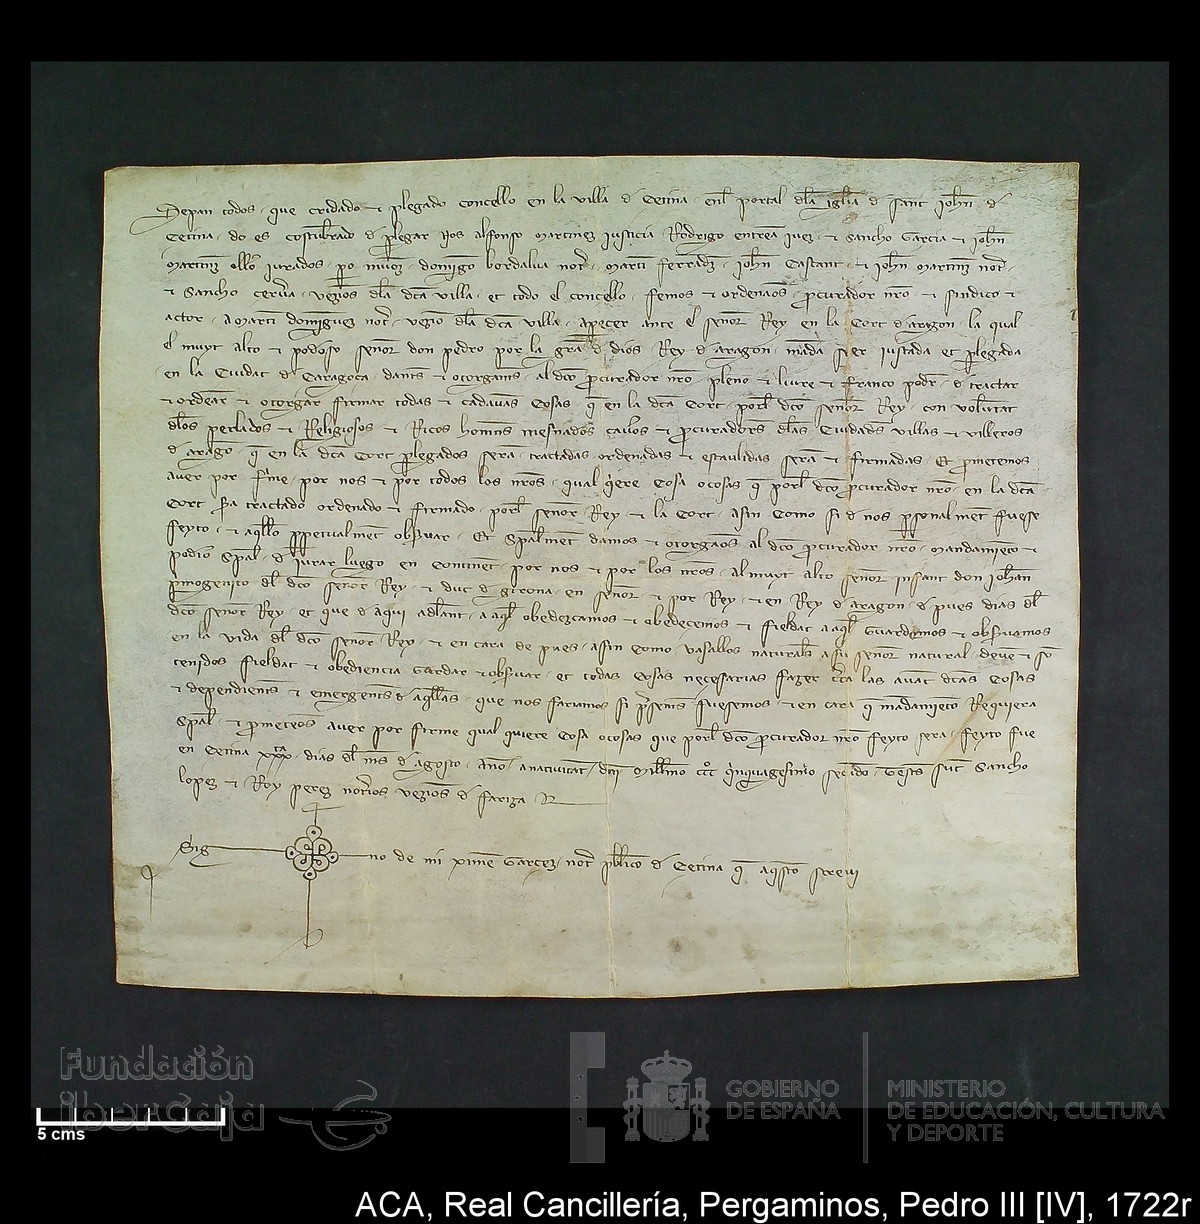 Sepan todos que cridado et plegado concello en la villa d Cetina enl portal dla iglia d sant Johan d
Cetina do es costubrado d plegar Nos alfonso martinez iusticia Rodrigo entrea iuez et Sancho Garcia et Johan
martinz iurados po muoz domigo bordalua not marti ferradz Johan Castant et Johan martinz not
et Sancho cerua vezios dla dca villa et todo el concello femos et ordenaos pcurador nro et sindico et
actor a marti domiguez not vezio dla dca villa a pecer ante el senor Rey en la Cort daragon la qual
el muyt alto et podoso senor don pedro por la gra d dios Rey daragon mada seer iustada et plegada
en la Ciudat d Caragoca dants et otorgants al dco pcurador nro pleno et liure et franco podr d tractar
et ordear et otorgar firmar todas et cadaunas cosas q en la dca Cort porl dco senor Rey con voluntat
dlos perlados et Religiosos et Ricos homns mesnados caulos et pcuradors dlas Ciudads villas et villeros
d arago q en la dca Cort plegados sera tractadas ordenadas et estaulidas sera et firmadas Et pmetemos
auer por firme por nos et por todos los nros qual qere cosa o cosas q porl dco pcurador nro en la dca
Cort sra tractado ordenado et firmado porl senor Rey et la Cort asin como si d nos psonalment fuese
feyto et aqllo ppetualment obsuar Et spalment damos et otorgaos al dco pcurador nro mandamieto et
podio spal d iurar luego en continet por nos et por los nros al muyt alto senor infant don Johan
pmogenito dl dco senor Rey et duc d girona en senor et por Rey et en Rey d aragon d pues dias dl
dco senor Rey et que d aqui adlant a aql obedezcamos et obedecemos et fieldat a aql guardemos et obsuamos
en la vida dl dco senor Rey et en cara de pues asin como vasallos naturals a su senor natural deue et so
tenidos fieldat et obediencia guardar et obsuar et todas cosas necesarias fazer cca las auat dcas cosas
et dependients et emergents d aqllas que nos fariamos si psents fuesemos et en cara q madamieto Requiera
spal et pmeteos auer por firme qual quiere cosa o cosas que porl dco pcurador nro feyto sera feyto fue
en Cetina xxx dias dl ms d agosto Ano a natiuitat dni Millmo ccc qnquagesimo secudo tests sut Sancho
lopez et Roy perez notrios vezios d fariza
Sig no de mi xime Garcez not pblico d Cetina q aqsto screui
Fundación
iberCaja
5 cms
GOBIERNO
DE ESPAÑA
MINISTERIO
DE EDUCACIÓN, CULTURA
Y DEPORTE
ACA, Real Cancillería, Pergaminos, Pedro III [IV], 1722r